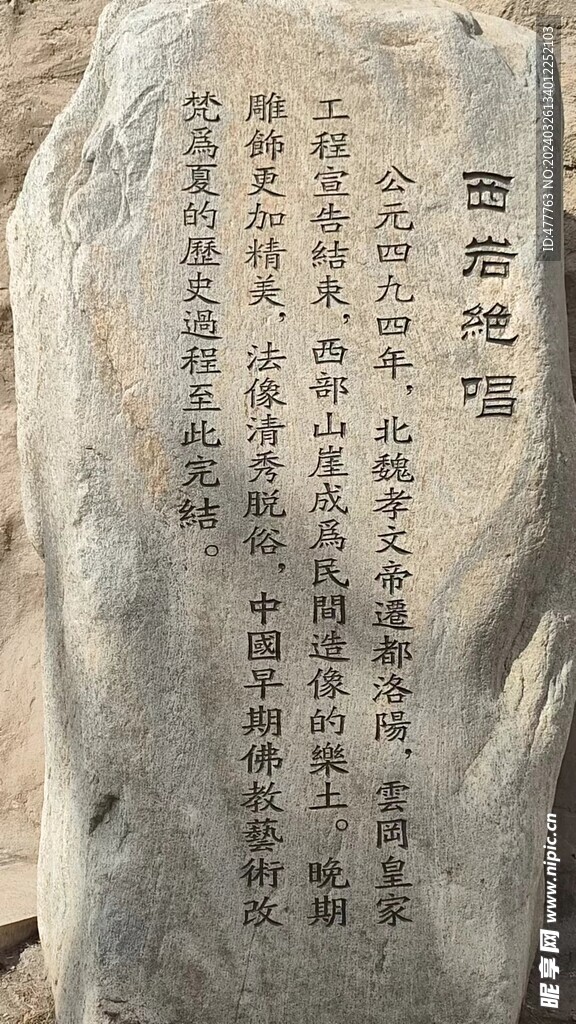 西岩絶唱
公元四九四年，北魏孝文帝遷都洛陽，雲岡皇家
工程宣告結束，西部山崖成爲民間造像的樂土。晚期
雕飾更加精美，法像清秀脱俗，中國早期佛教藝術改
梵爲夏的歷史過程至此完結。
ID:477763 NO:20240326134012252103
昵享网 www.nipic.cn